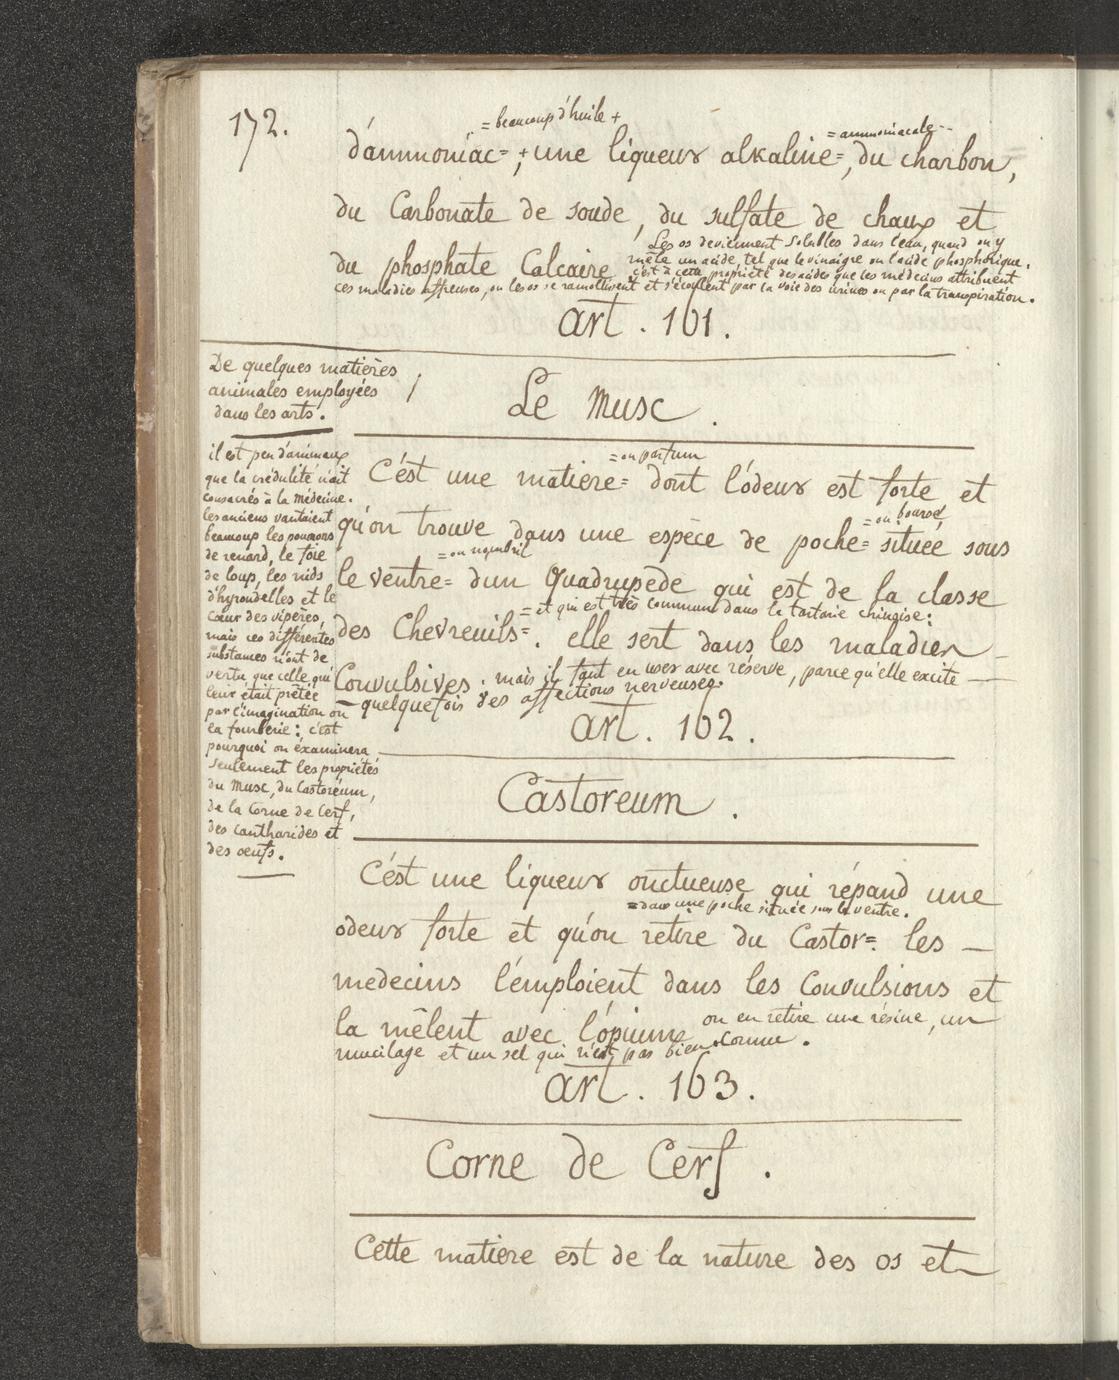 172.
= beaucoup d'huile +
= ammoniacale --
d'ammoniac= + une liqueur alkaline=, du charbon,
du Carbonate de soude, du sulfate de chaux et
du phosphate Calcaire. Les os deviennent solubles dans l'eau, quand on y
mêle un acide, tel que le vinaigre ou l'acide phosphorique.
c'est à cette propriété des acides que les médecins attribuent
ces maladies affreuses, ou les os se ramollissent et s'écoulent par la voie des urines ou par la transpiration.
art. 161.
De quelques matières
animales employées
dans les arts.
Le Musc.
il est peu d'animaux
que la crédulité n'ait
consacrés à la médecine.
les anciens vantaient
beaucoup les poumons
de renard, le foie
de loup, les nids
d'hyrondelles et le
cœur des vipères,
mais ces différentes
substances n'ont de
vertu que celle qui
leur était prêtée
par l'imagination ou
la fourberie : c'est
pourquoi on éxaminera
seulement les propriétés
du Musc, du Castoréum,
de la Corne de Cerf,
des cantharides et
des œufs.
= ou parfum
C'ést une matière= dont l'ódeur est forte et
= ou bourse
qu'on trouve dans une espèce de poche= située sous
= ou nombril
le ventre= d'un Quadrupède qui est de la classe
= et qui est très commun dans la tartarie chinoise :
des Chevreuils=. elle sert dans les maladies
Convulsives. mais il faut en user avec réserve, parce qu'elle excite
quelquefois des affections nerveuses.
art. 162.
Castoreum.
C'ést une liqueur onctueuse qui répand une
= dans une poche située sous le ventre.
odeur forte et qu'on retire du Castor=. les
medecins l'émploient dans les Convulsions et
la mêlent avec l'ópium on en retire une résine, un
mucilage et un sel qui n'est pas bien connu.
art. 163.
Corne de Cerf.
Cette matiere est de la nature des os et